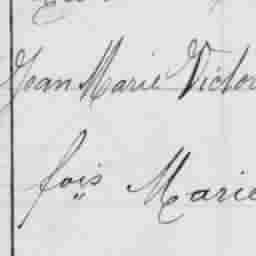 Jean Marie Victor
fois Marie